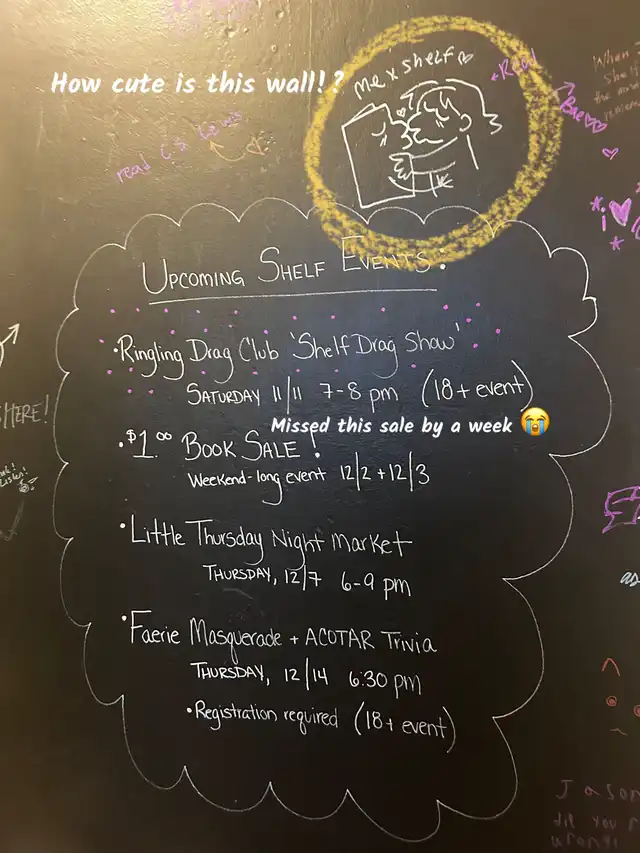 How cute is this wall!?
me x shelf
+Read
Bae
read CS Lewis
When
Shelf
the
i
UPCOMING SHELF EVENTS:
•Ringling Drag Club 'Shelf Drag Show'
SATURDAY 11/11 7-8 pm (18+ event)
Missed this sale by a week 😭
•$1.00 BOOK SALE!
Weekend-long event 12/2 + 12/3
•Little Thursday Night Market
THURSDAY, 12/7 6-9 pm
•Faerie Masquerade + ACOTAR Trivia
THURSDAY, 12/14 6:30 pm
•Registration required (18+ event)
HERE!
as
Jason
did you
wrong?